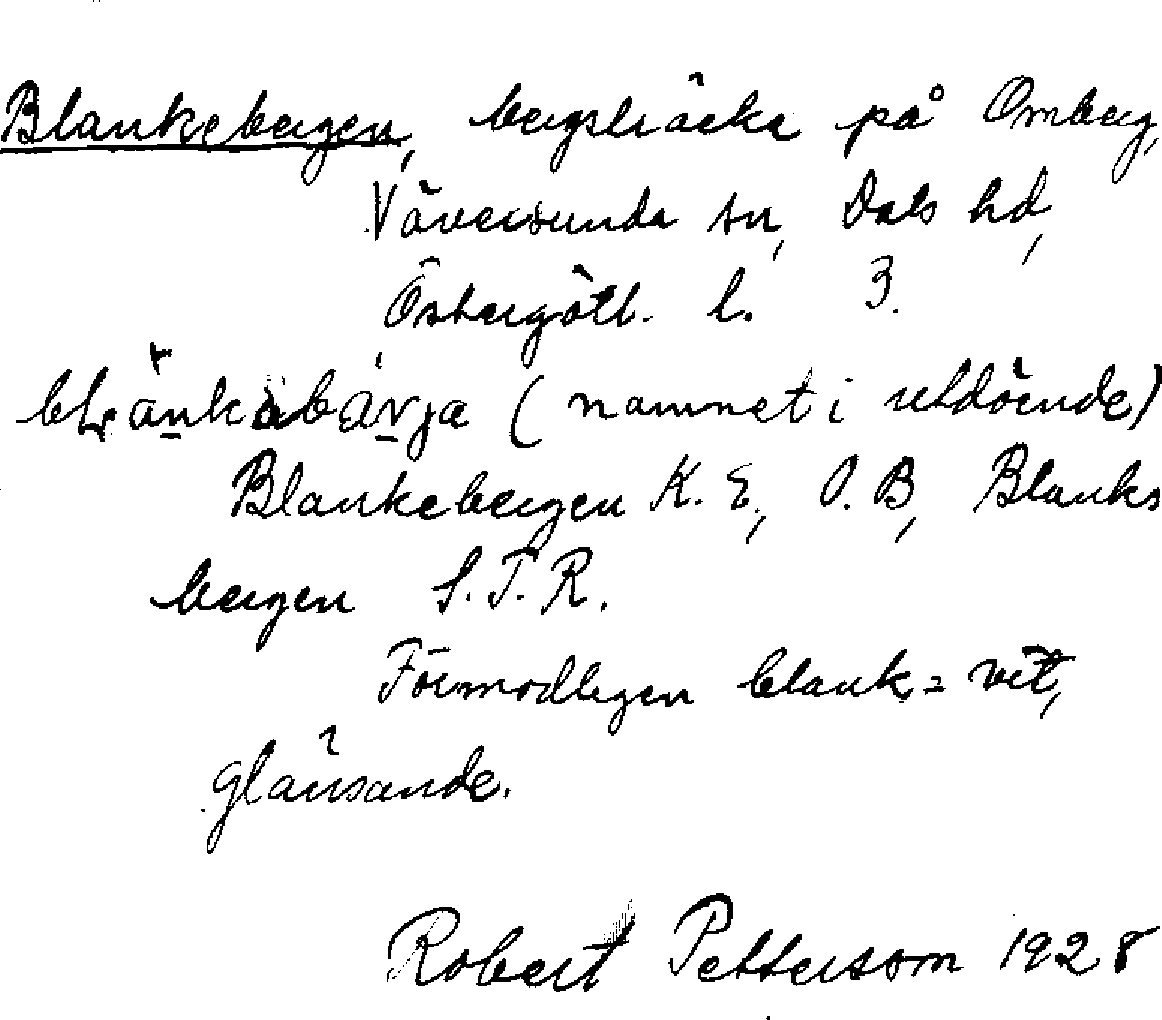 Blankebergen, bergsträcka på Omberg,
Väversunda sn, Dals hd,
Östergötl. l. 3.
(namnet i utdöende)
Blankebergen K. E., O. B, Blanks
bergen S. T. R.
Förmodligen blank = vit,
glänsande.
Robert Pettersson 1928